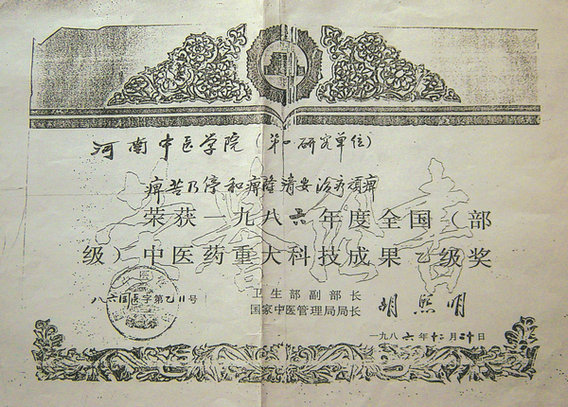 河南中医学院（第一研究单位）
痹苦乃停和痹隆清安治疗顽痹
荣获一九八六年度全国（部
级）中医药重大科技成果乙级奖
八六国医字第乙11号
卫生部副部长
国家中医管理局局长 胡熙明
一九八六年十二月二十日